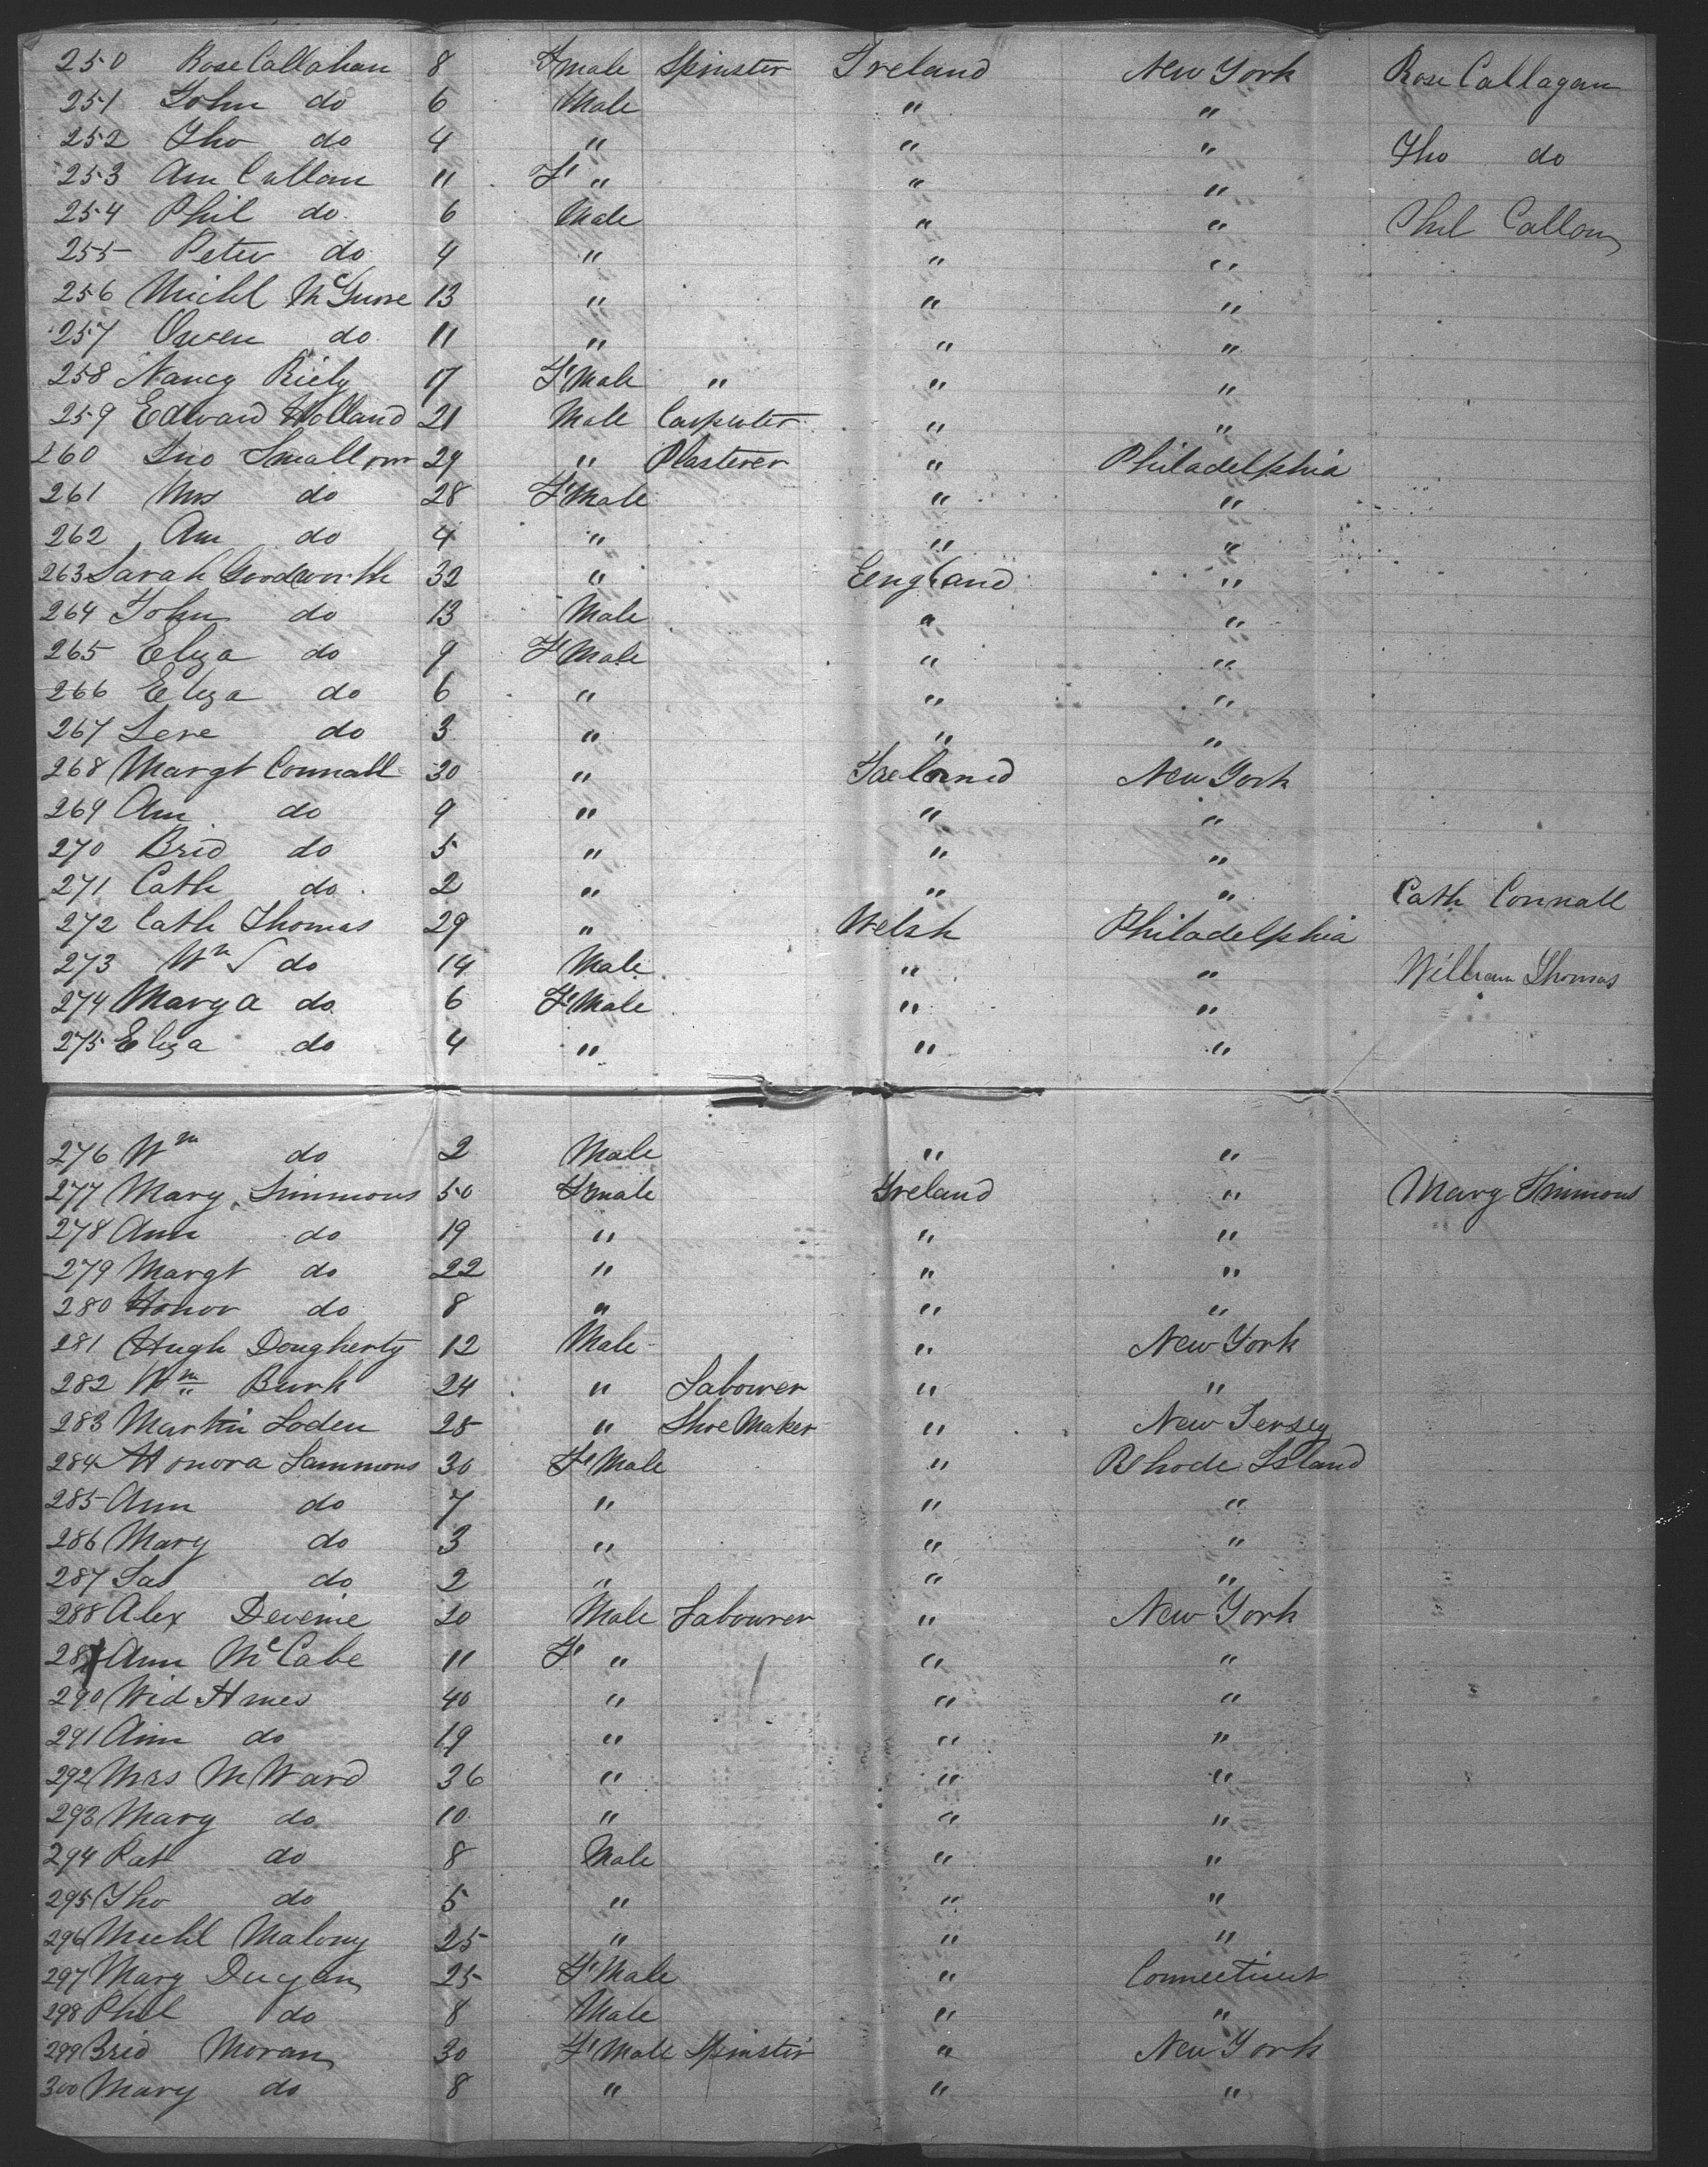 250 Rose Callahan 8 Fmale Spinster Ireland New York Rose Callagan
251 John do 6 Male " "
252 Tho do 4 " " " Tho do
253 Ann Callan 11 F " " "
254 Phil do 6 Male " " Phil Callon
255 Peter do 4 " " "
256 Michl McGuire 13 " " "
257 Owen do 11 " " "
258 Nancy Riely 17 F'Male " " "
259 Edward Holland 21 Male Carpenter " "
260 Jno Smallom 29 " Plasterer " Philadelphia
261 Mrs do 28 F'Male " "
262 Ann do 4 " " "
263 Sarah Goodworth 32 " Eengland "
264 John do 13 Male " "
265 Eliza do 9 F'Male " "
266 Eliza do 6 " " "
267 Sere do 3 " " "
268 Margt Connall 30 " New York
269 Ann do 9 " " "
270 Brid do 5 " " "
271 Cath do 2 " " " Cath Connall
272 Cath Thomas 29 " Welsh Philadelphia
273 Wm S do 14 Male " " William Thomas
274 Mary A do 6 F'Male " "
275 Eliza do 4 " " "
276 Wm do 2 Male " "
277 Mary Simmons 50 F'male Ireland " Mary Simmons
278 Ann do 19 " " "
279 Margt do 22 " " "
280 Honor do 8 " " "
281 Hugh Dougherty 12 Male " New York
282 Wm Burk 24 " Labourer " "
283 Martin Loden 25 " Shoe Maker " New Jersey
284 Honora Sammons 30 F'Male " Rhode Island
285 Ann do 7 " " "
286 Mary do 3 " " "
287 Jas do 2 " " "
288 Alex Devenie 20 Male Labourer " New York
289 Ann McCabe 11 F' " " "
290 Wid Hmes 40 " " "
291 Ann do 19 " " "
292 Mrs M Ward 36 " " "
293 Mary do 10 " " "
294 Pat do 8 Male " "
295 Tho do 5 " " "
296 Michl Malony 25 " " "
297 Mary Dugan 25 F'Male " Connecticut
298 Phil do 8 Male " "
299 Brid Moran 30 F'Male Spinster " New York
300 Mary do 8 " " "